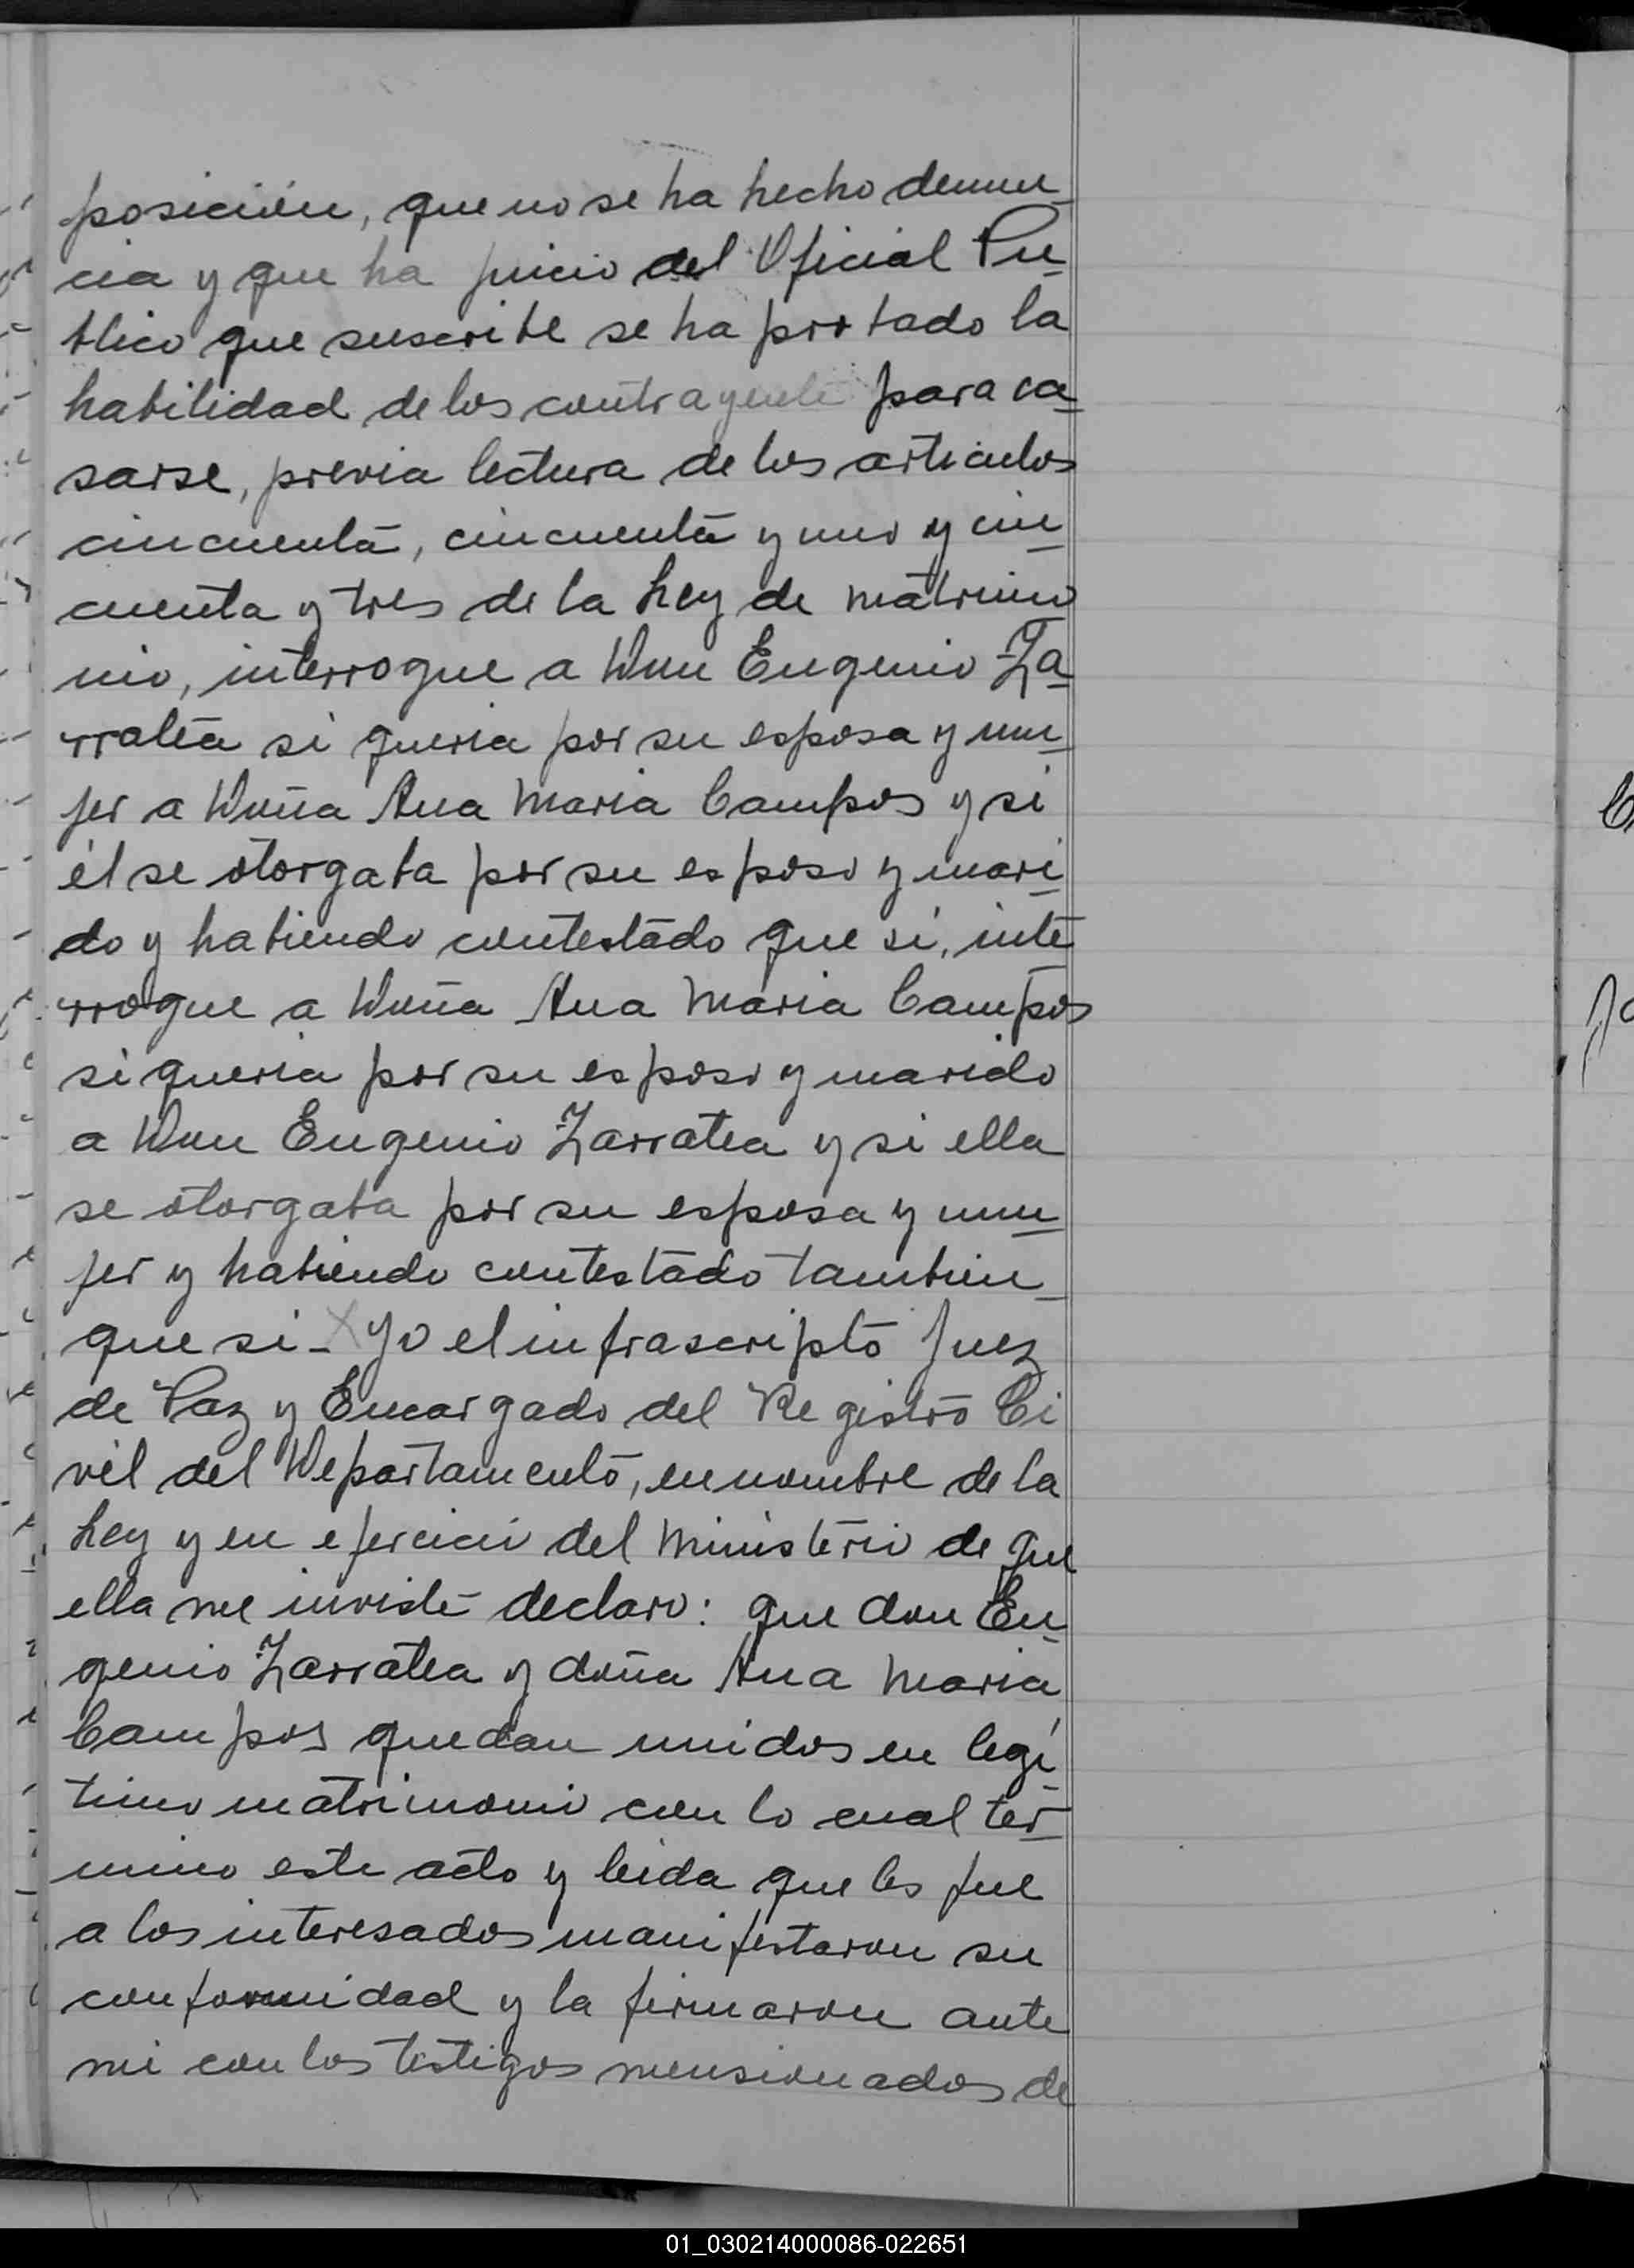 posición, que no se ha hecho denun_
cia y que ha juicio del Oficial Pu_
blico que suscribe se ha probado la
habilidad de los contrayente para ca_
sarse, previa lectura de los articulos
cincuenta, cincuenta y uno y cin_
cuenta y tres de la Ley de matrimo
nio, interrogue a Don Eugenio Za_
rratea si queria por su esposa y mu_
jer a Doña Ana Maria Campos y si
él se otorgaba por su esposo y mari_
do y habiendo contestado que si, inte
rrogue a Doña Ana Maria Campos
si queria por su esposo y marido
a Don Eugenio Zarratea y si ella
se otorgaba por su esposa y mu_
jer y habiendo contestado tambien_
que si_ X Yo el infrascripto Juez
de Paz y Encargado del Registro Ci
vil del Departamento, en nombre de la
Ley y en ejercicio del Ministerio de que
ella me inviste declaro: que don Eu_
genio Zarratea y doña Ana Maria
Campos quedan unidos en legí_
timo matrimonio con lo cual ter_
mino este acto y leida que les fue
a los interesados manifestaron su
conformidad y la firmaron ante
mi con los testigos mensionados de
01_030214000086-022651